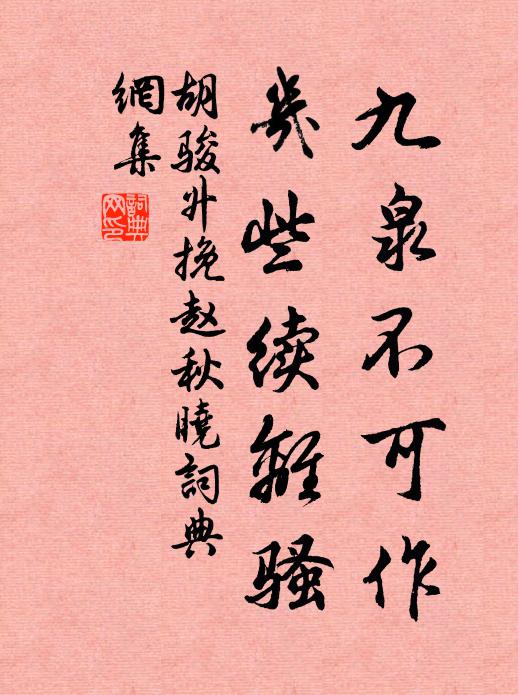 九泉不可作
几些续離骚
胡骏升挽赵秋曉詞典
網集
詞典网印